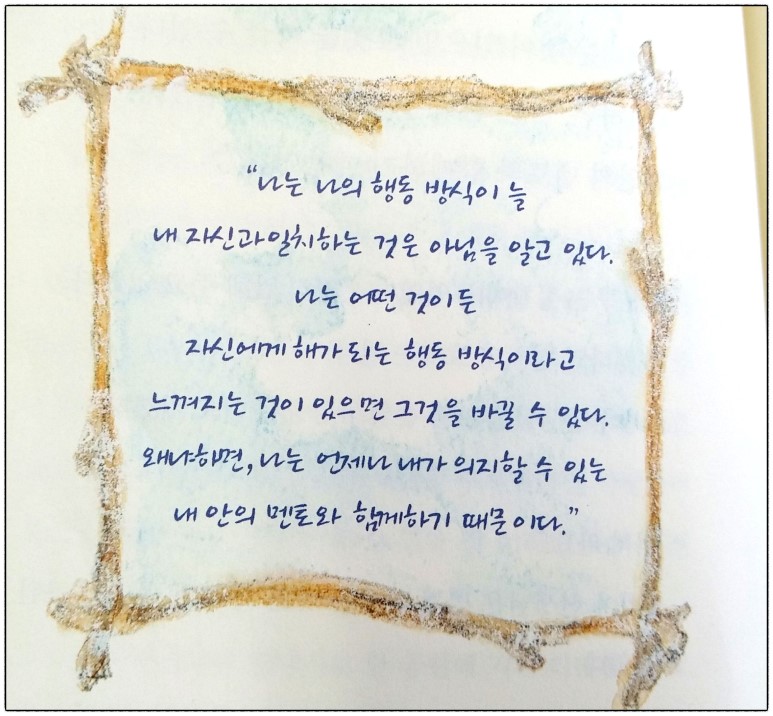 “나는 나의 행동 방식이 늘
내 자신과 일치하는 것은 아님을 알고 있다.
나는 어떤 것이든
자신에게 해가 되는 행동 방식이라고
느껴지는 것이 있으면 그것을 바꿀 수 있다.
왜냐하면, 나는 언제나 내가 의지할 수 있는
내 안의 멘토와 함께하기 때문이다.”